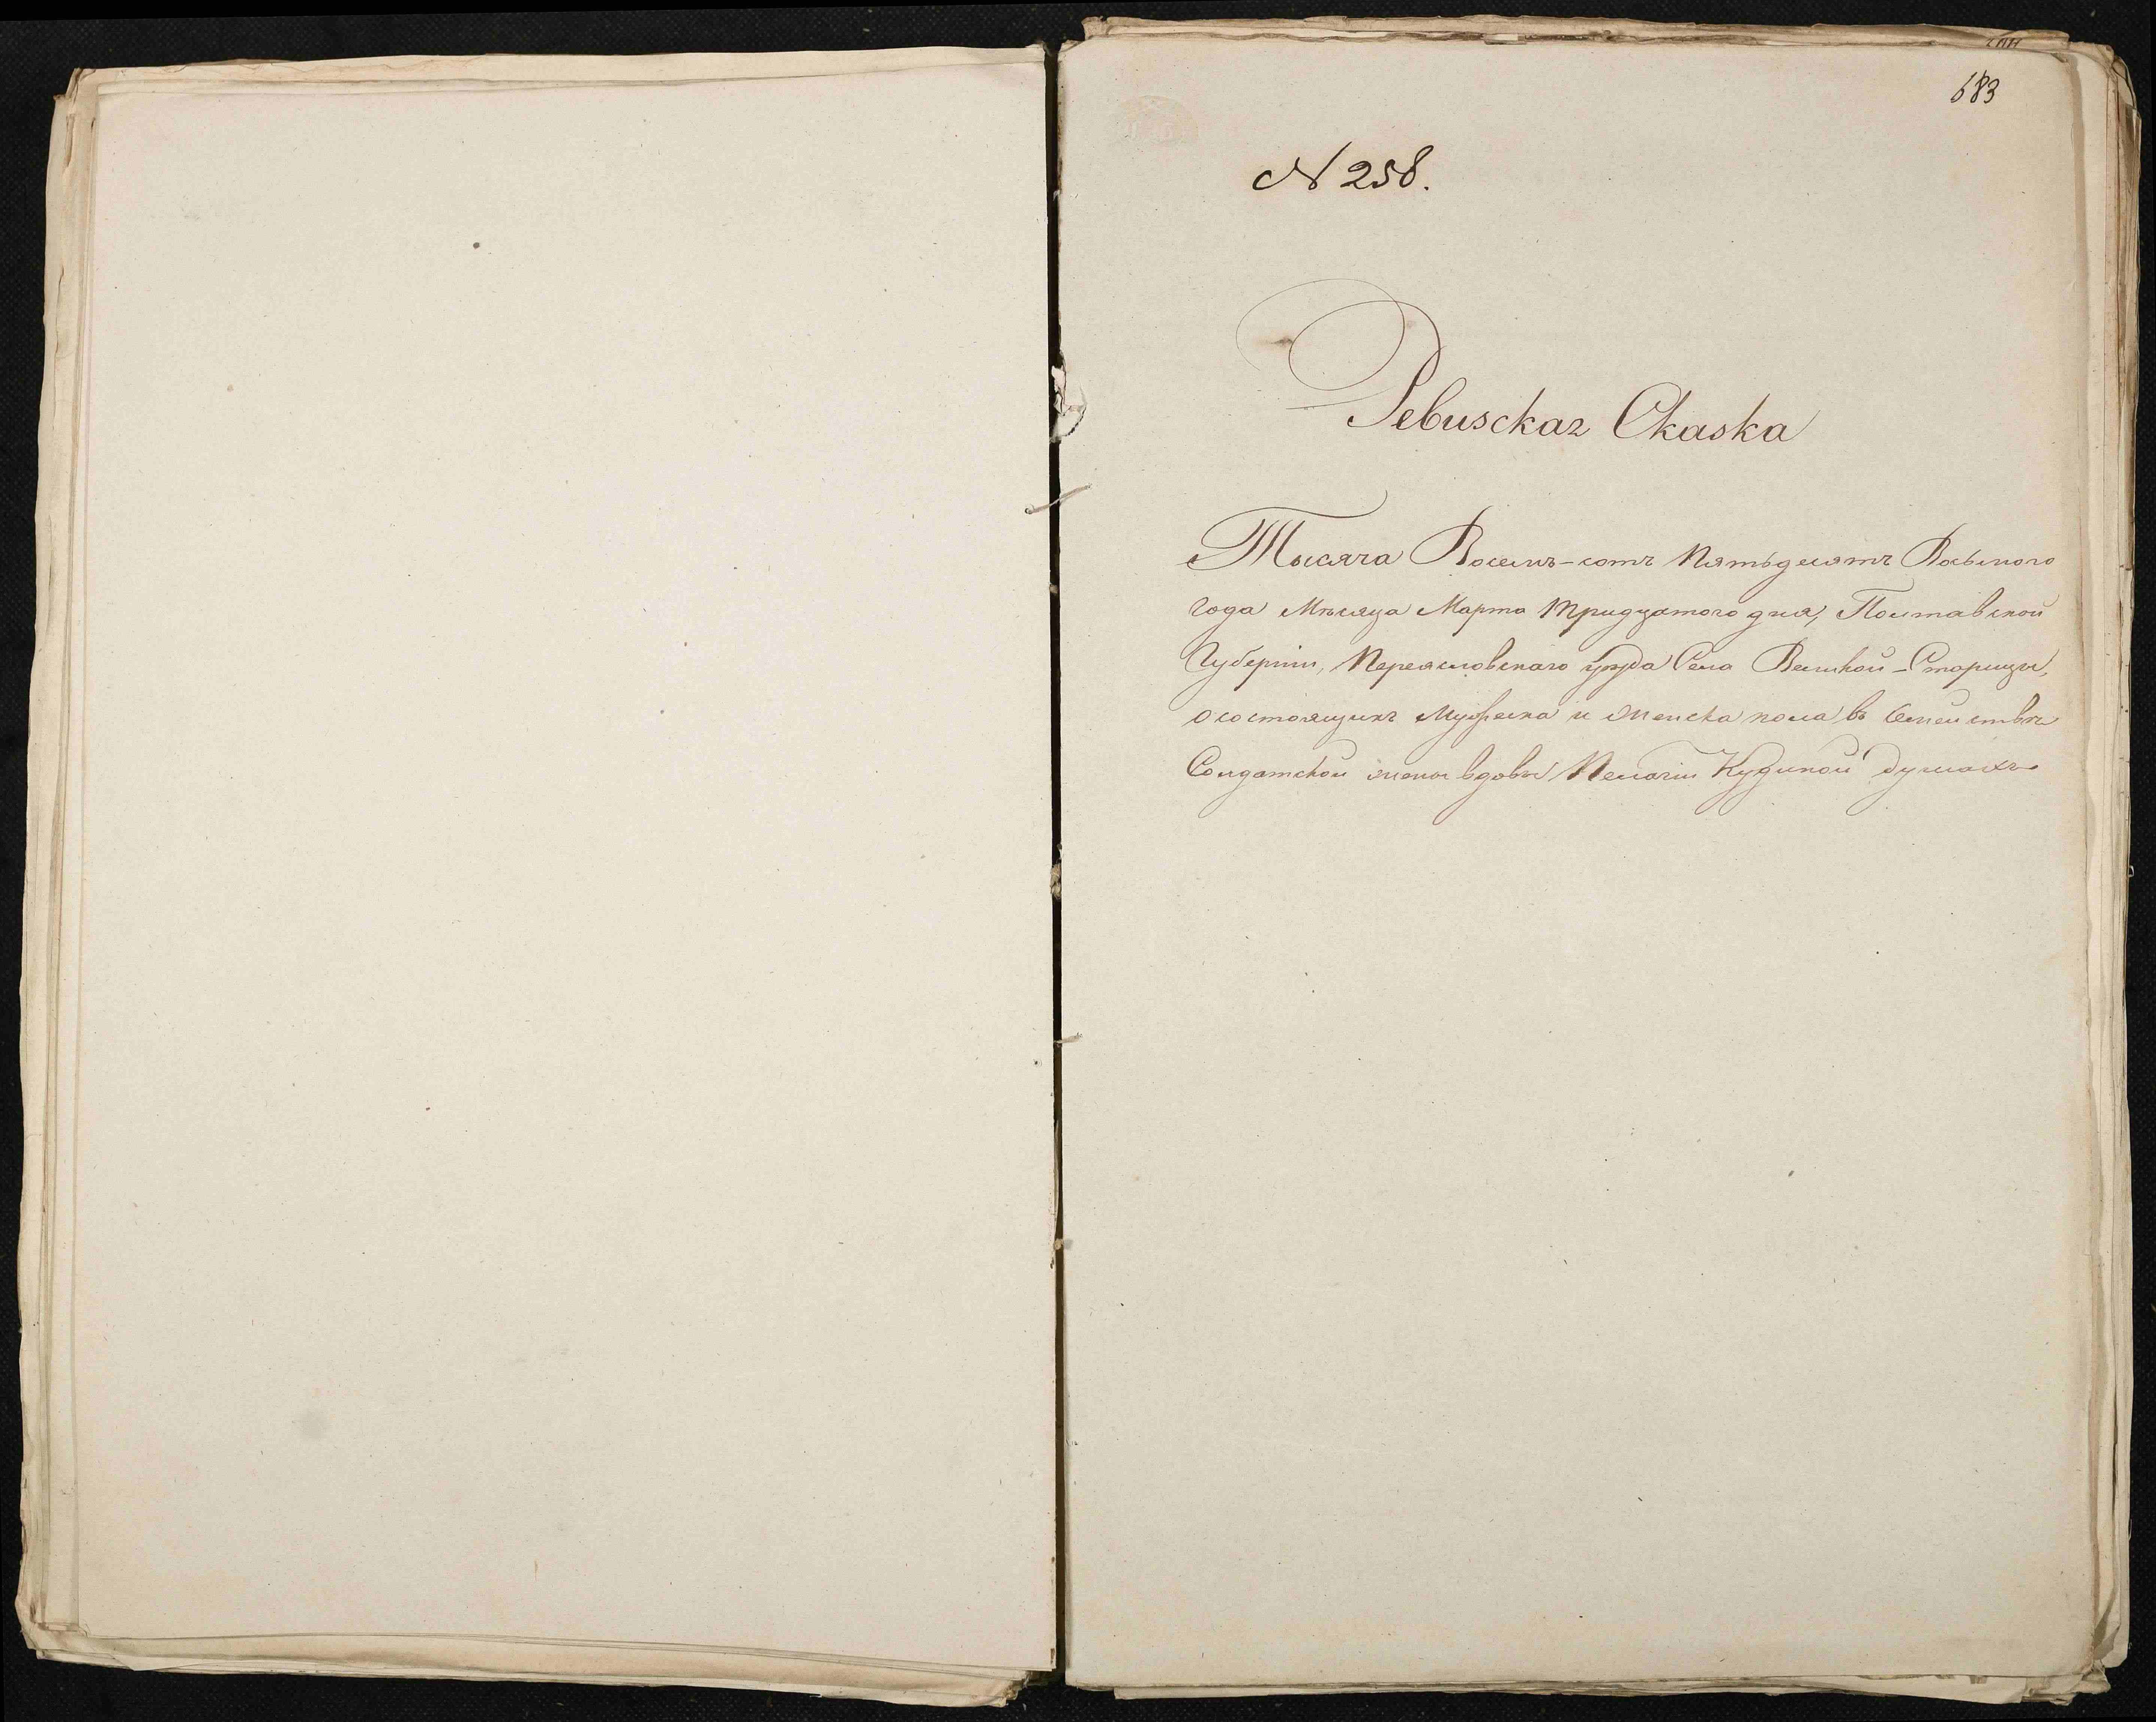 683
№ 258.
Ревизская Сказка
Тысяча Восемь-сотъ Пятьдесятъ Восьмого
года Мѣсяца Марта тридцатого дня, Полтавской
Губерніи, Переясловскаго уѣзда Села Великой-Старицы,
о состоящихъ Мужеска и Женска пола въ Семействѣ
Солдатской жены вдовы Пелагіи Кудиной душахъ